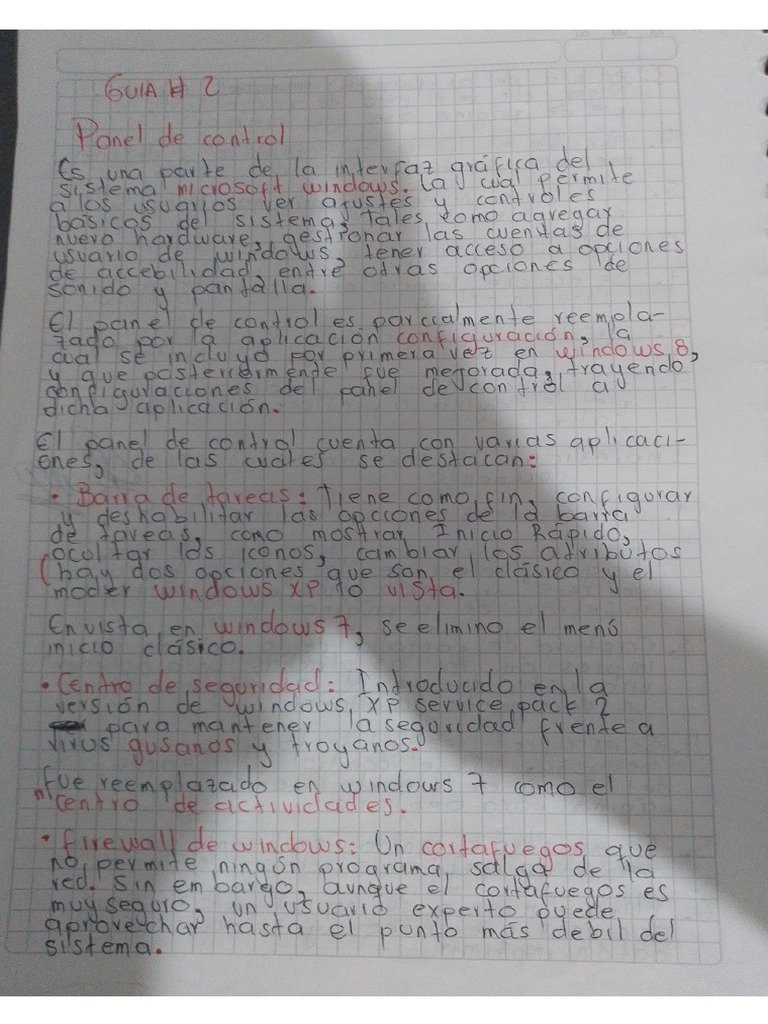 GUIA # 2
Panel de control
Es una parte de la interfaz gráfica del
sistema microsoft windows. la cual permite
a los usuarios ver ajustes y controles
básicos del sistema, tales como agregar
nuevo hardware, gestionar las cuentas de
usuario de windows, tener acceso a opciones
de accebilidad, entre otras opciones de
sonido y pantalla.
El panel de control es parcialmente reempla-
zado por la aplicación configuración, la
cual se incluyo por primera vez en windows 8,
y que posteriormente fue mejorada, trayendo
configuraciones del panel de control a
dicha aplicación.
El panel de control cuenta con varias aplicaci-
ones, de las cuales se destacan:
• Barra de tareas: Tiene como fin, configurar
y deshabilitar las opciones de la barra
de tareas, como mostrar Inicio Rápido,
ocoltar los iconos, cambiar los atributos
(hay dos opciones que son el clásico y el
moder windows XP o vista.
En vista en windows 7, se elimino el menú
inicio clásico.
• Centro de seguridad: Introducido en la
versión de windows XP service pack 2
para mantener la seguridad frente a
virus gusanos y troyanos.
Fue reemplazado en windows 7 como el
"centro de actividades.
• firewall de windows: Un cortafuegos que
no permite ningún programa, salga de la
red. Sin embargo, aunque el cortafuegos es
muy seguro, un usuario experto puede
aprovechar hasta el punto más debil del
sistema.